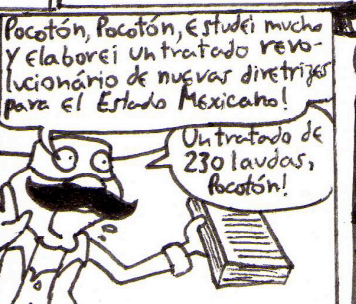 Pocotón, Pocotón, Estudei mucho
y Elaborei un tratado revo-
lucionário de nuevas diretrizes
para el Estado Mexicano!
Un tratado de
230 laudas,
Pocotón!